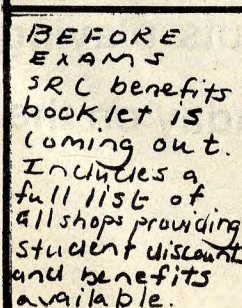 BEFORE
EXAMS
SRC benefits
booklet is
coming out.
Includes a
full list of
all shops providing
student discount
and benefits
available.